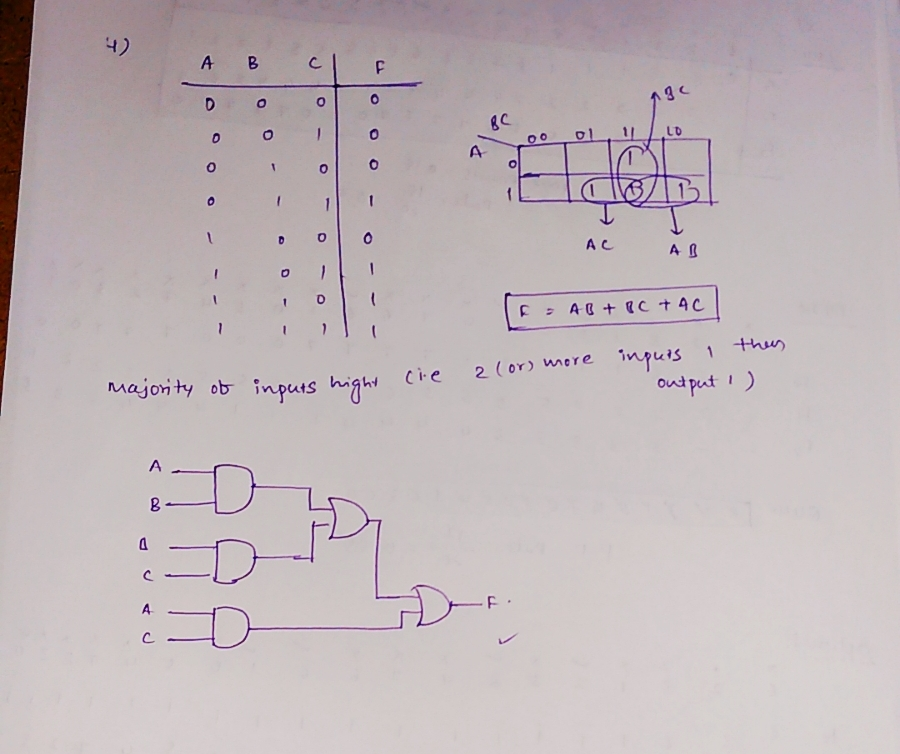 4)
A B C F
0 0 0 0
0 0 1 0
0 1 0 0
0 1 1 1
1 0 0 0
1 0 1 1
1 1 0 1
1 1 1 1
BC
BC 00 01 11 10
A 0 1
1 1 1 1
AC AB
F = AB + BC + AC
Majority of inputs hight (i.e 2 (or) more inputs 1 then
output 1)
A
B
B
C
A
C
F.